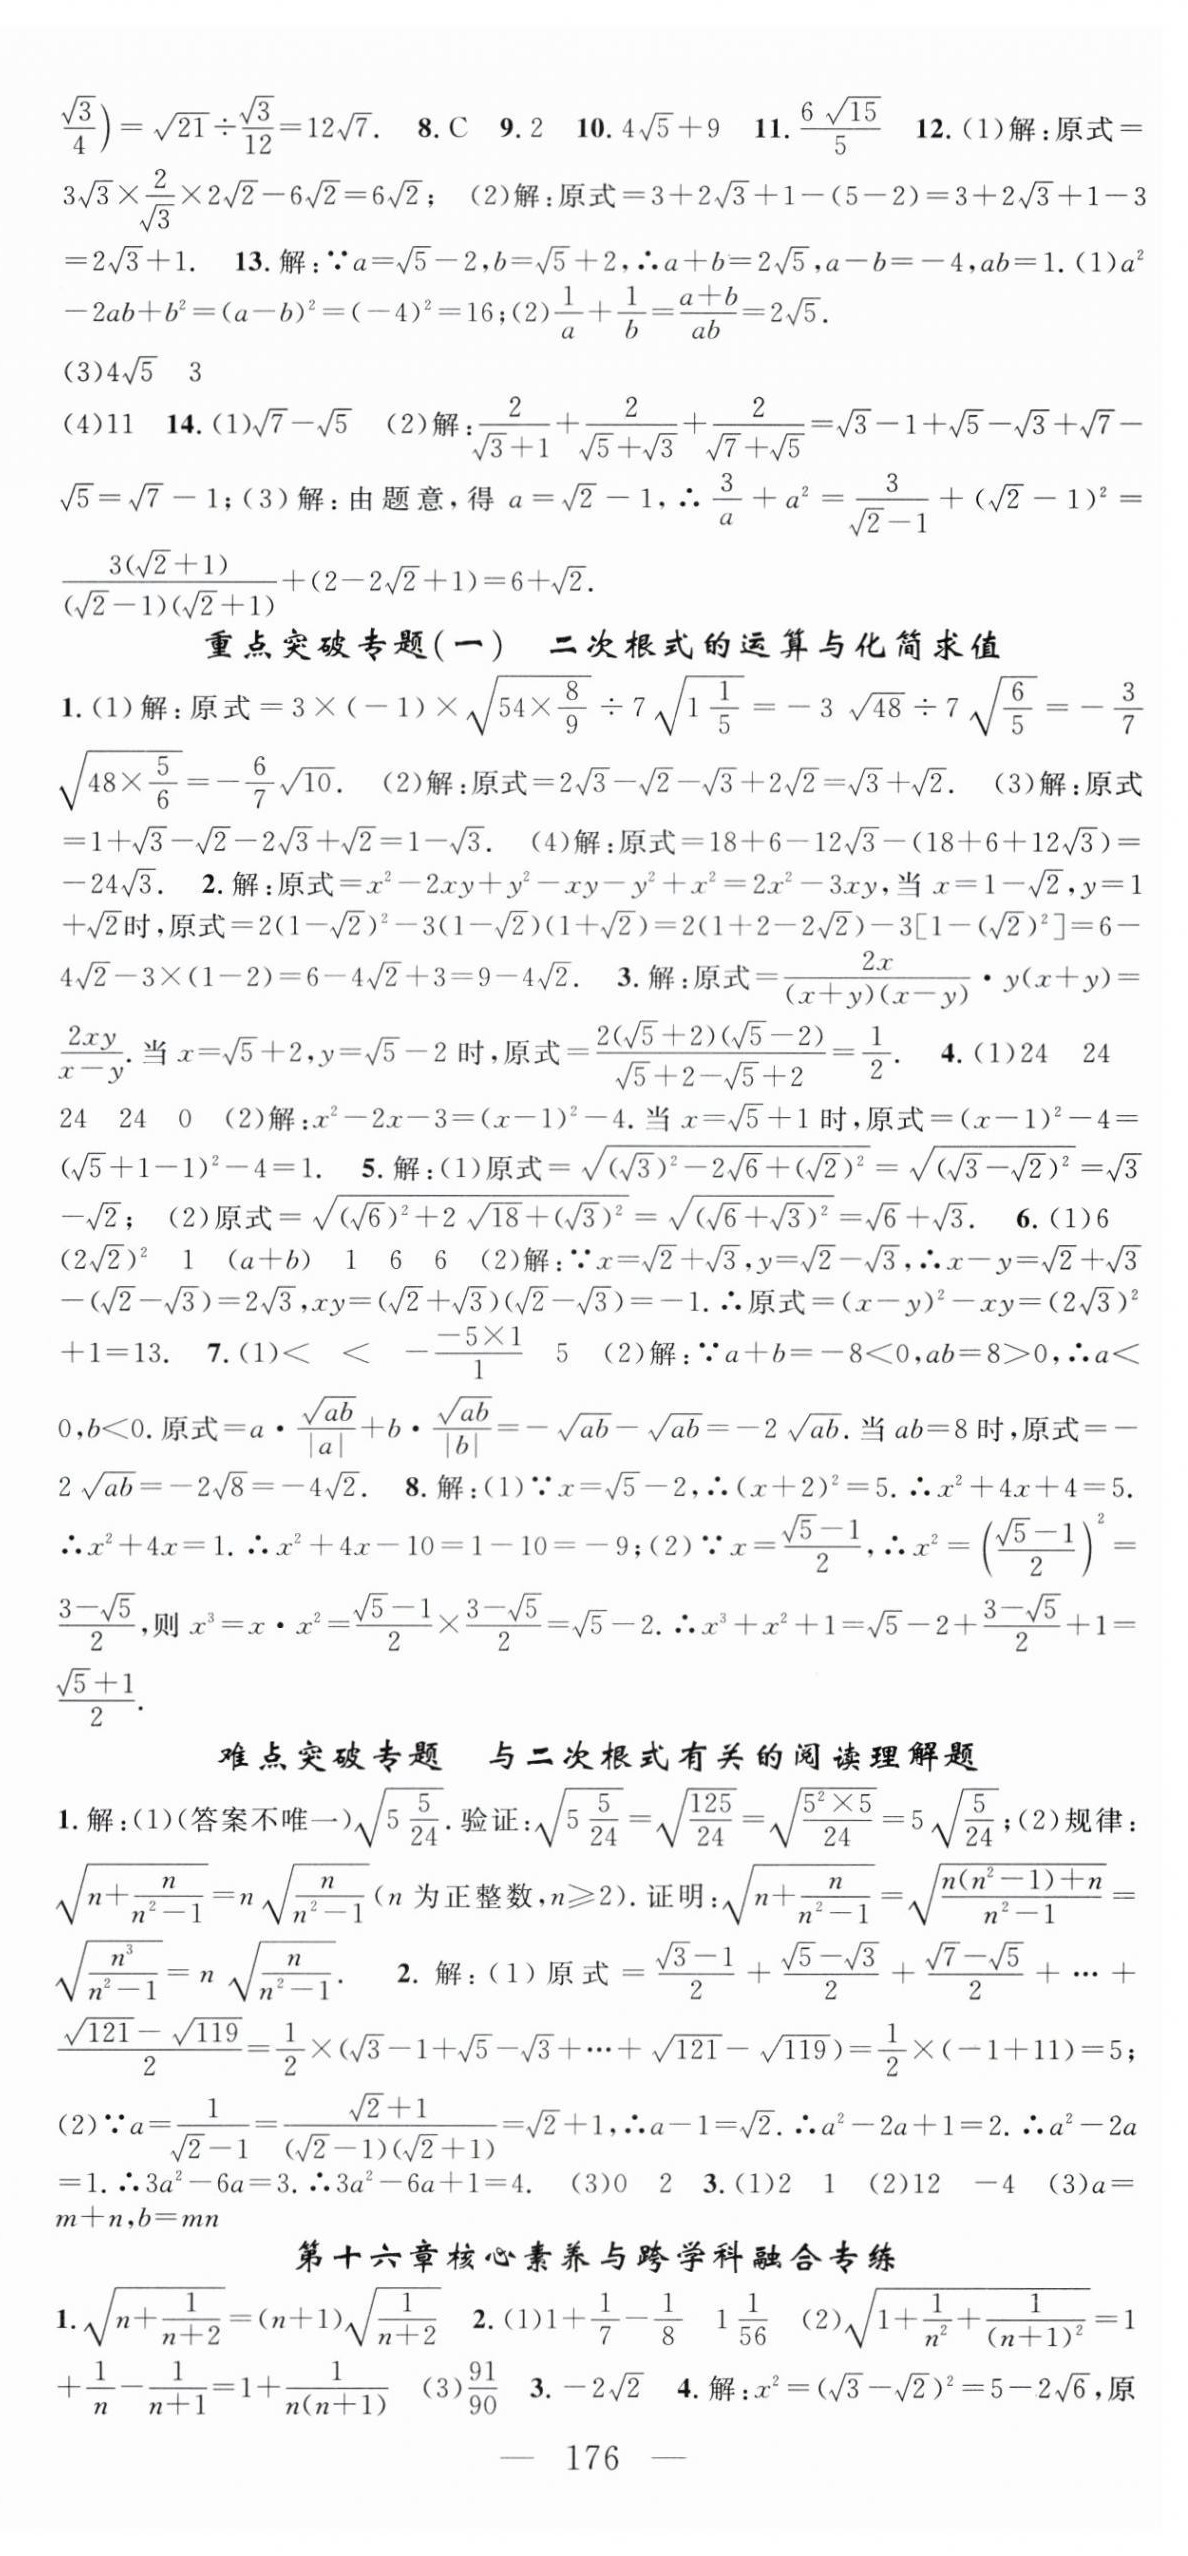 √3/4)=√21÷√3/12=12√7. 8.C 9.2 10.4√5+9 11.6√15/5 12.(1)解:原式=
3√3×2/√3×2√2-6√2=6√2; (2)解:原式=3+2√3+1-(5-2)=3+2√3+1-3
=2√3+1. 13.解:∵a=√5-2,b=√5+2,∴a+b=2√5,a-b=-4,ab=1.(1)a²
-2ab+b²=(a-b)²=(-4)²=16;(2)1/a+1/b=(a+b)/ab=2√5.
(3)4√5 3
(4)11 14.(1)√7-√5 (2)解:2/(√3+1)+2/(√5+√3)+2/(√7+√5)=√3-1+√5-√3+√7-
√5=√7-1;(3)解:由题意,得 a=√2-1,∴3/a+a²=3/(√2-1)+(√2-1)²=
3(√2+1)/((√2-1)(√2+1))+(2-2√2+1)=6+√2.
重点突破专题(一) 二次根式的运算与化简求值
1.(1)解:原式=3×(-1)×√(54×8/9)÷7√(1 1/5)=-3√48÷7√(6/5)=-3/7
√(48×5/6)=-6/7√10. (2)解:原式=2√3-√2-√3+2√2=√3+√2. (3)解:原式
=1+√3-√2-2√3+√2=1-√3. (4)解:原式=18+6-12√3-(18+6+12√3)=
-24√3. 2.解:原式=x²-2xy+y²-xy-y²+x²=2x²-3xy,当 x=1-√2,y=1
+√2时,原式=2(1-√2)²-3(1-√2)(1+√2)=2(1+2-2√2)-3[1-(√2)²]=6-
4√2-3×(1-2)=6-4√2+3=9-4√2. 3.解:原式=2x/((x+y)(x-y))·y(x+y)=
2xy/(x-y).当 x=√5+2,y=√5-2 时,原式=2(√5+2)(√5-2)/(√5+2-√5+2)=1/2. 4.(1)24 24
24 24 0 (2)解:x²-2x-3=(x-1)²-4.当 x=√5+1 时,原式=(x-1)²-4=
(√5+1-1)²-4=1. 5.解:(1)原式=√((√3)²-2√6+(√2)²)=√((√3-√2)²)=√3
-√2; (2)原式=√((√6)²+2√18+(√3)²)=√((√6+√3)²)=√6+√3. 6.(1)6
(2√2)² 1 (a+b) 1 6 6 (2)解:∵x=√2+√3,y=√2-√3,∴x-y=√2+√3
-(√2-√3)=2√3,xy=(√2+√3)(√2-√3)=-1.∴原式=(x-y)²-xy=(2√3)²
+1=13. 7.(1)< < -(-5×1)/1 5 (2)解:∵a+b=-8<0,ab=8>0,∴a<
0,b<0.原式=a·√ab/|a|+b·√ab/|b|=-√ab-√ab=-2√ab.当 ab=8 时,原式=-
2√ab=-2√8=-4√2. 8.解:(1)∵x=√5-2,∴(x+2)²=5.∴x²+4x+4=5.
∴x²+4x=1.∴x²+4x-10=1-10=-9;(2)∵x=(√5-1)/2,∴x²=((√5-1)/2)²=
(3-√5)/2,则 x³=x·x²=(√5-1)/2×(3-√5)/2=√5-2.∴x³+x²+1=√5-2+(3-√5)/2+1=
(√5+1)/2.
难点突破专题 与二次根式有关的阅读理解题
1.解:(1)(答案不唯一)√(5 5/24).验证:√(5 5/24)=√(125/24)=√(5²×5/24)=5√(5/24);(2)规律:
√(n+n/(n²-1))=n√(n/(n²-1))(n 为正整数,n≥2).证明:√(n+n/(n²-1))=√((n(n²-1)+n)/(n²-1))=
√(n³/(n²-1))=n√(n/(n²-1)). 2.解:(1)原式=(√3-1)/2+(√5-√3)/2+(√7-√5)/2+…+
(√121-√119)/2=1/2×(√3-1+√5-√3+…+√121-√119)=1/2×(-1+11)=5;
(2)∵a=1/(√2-1)=(√2+1)/((√2-1)(√2+1))=√2+1,∴a-1=√2.∴a²-2a+1=2.∴a²-2a
=1.∴3a²-6a=3.∴3a²-6a+1=4. (3)0 2 3.(1)2 1 (2)12 -4 (3)a=
m+n,b=mn
第十六章核心素养与跨学科融合专练
1.√(n+1/(n+2))=(n+1)√(1/(n+2)) 2.(1)1+1/7-1/8 1 1/56 (2)√(1+1/n²+1/(n+1)²)=1
+1/n-1/(n+1)=1+1/(n(n+1)) (3)91/90 3.-2√2 4.解:x²=(√3-√2)²=5-2√6,原
— 176 —